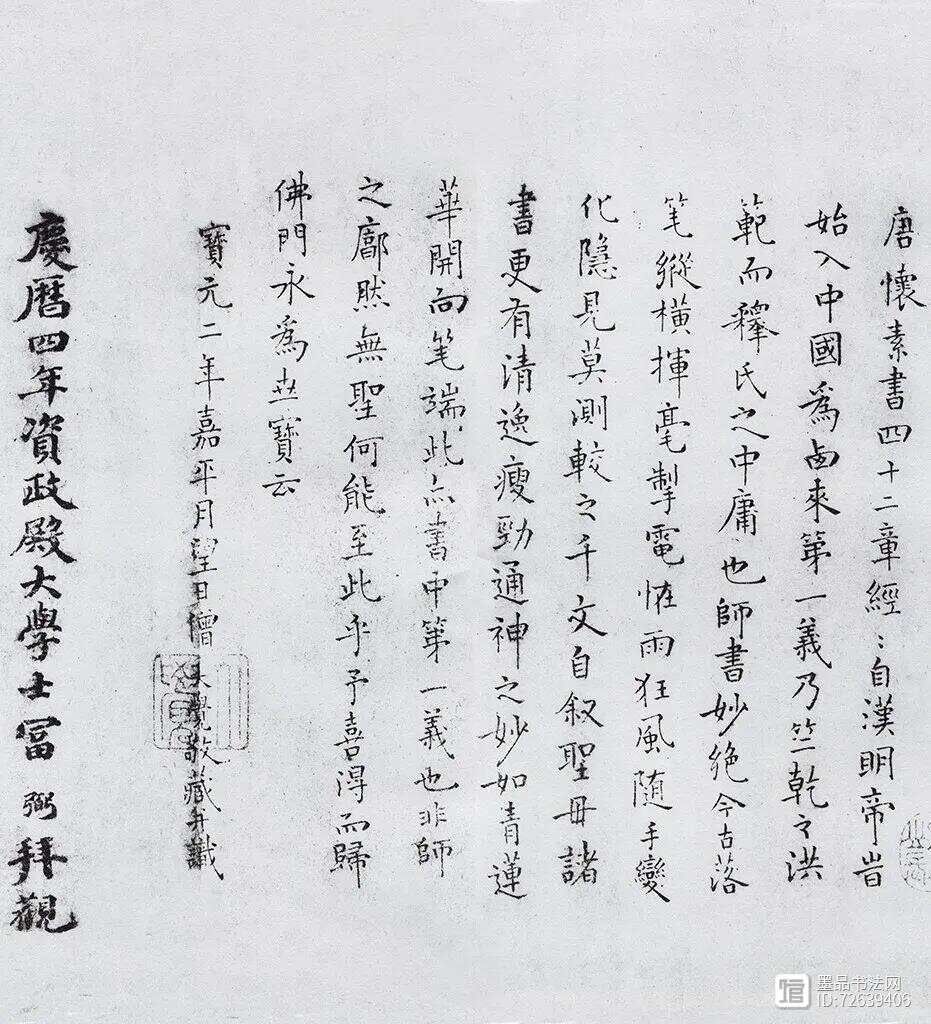 唐懷素書四十二章經〻自漢明帝旹
始入中國爲卤來第一義乃竺乾之洪
範而釋氏之中庸也師書妙絶今古落
笔縱橫揮毫掣電恠雨狂風隨手變
化隱見莫測較之千文自叙聖毋諸
書更有清逸瘦勁通神之妙如青蓮
華開向笔端此亦書中第一義也非師
之廓然無聖何能至此乎予喜得而歸
佛門永爲卋寶云
寶元二年嘉平月望日僧大覺敬藏并識
慶曆四年資政殿大學士富弼拜觀
墨品书法网
ID:72639406